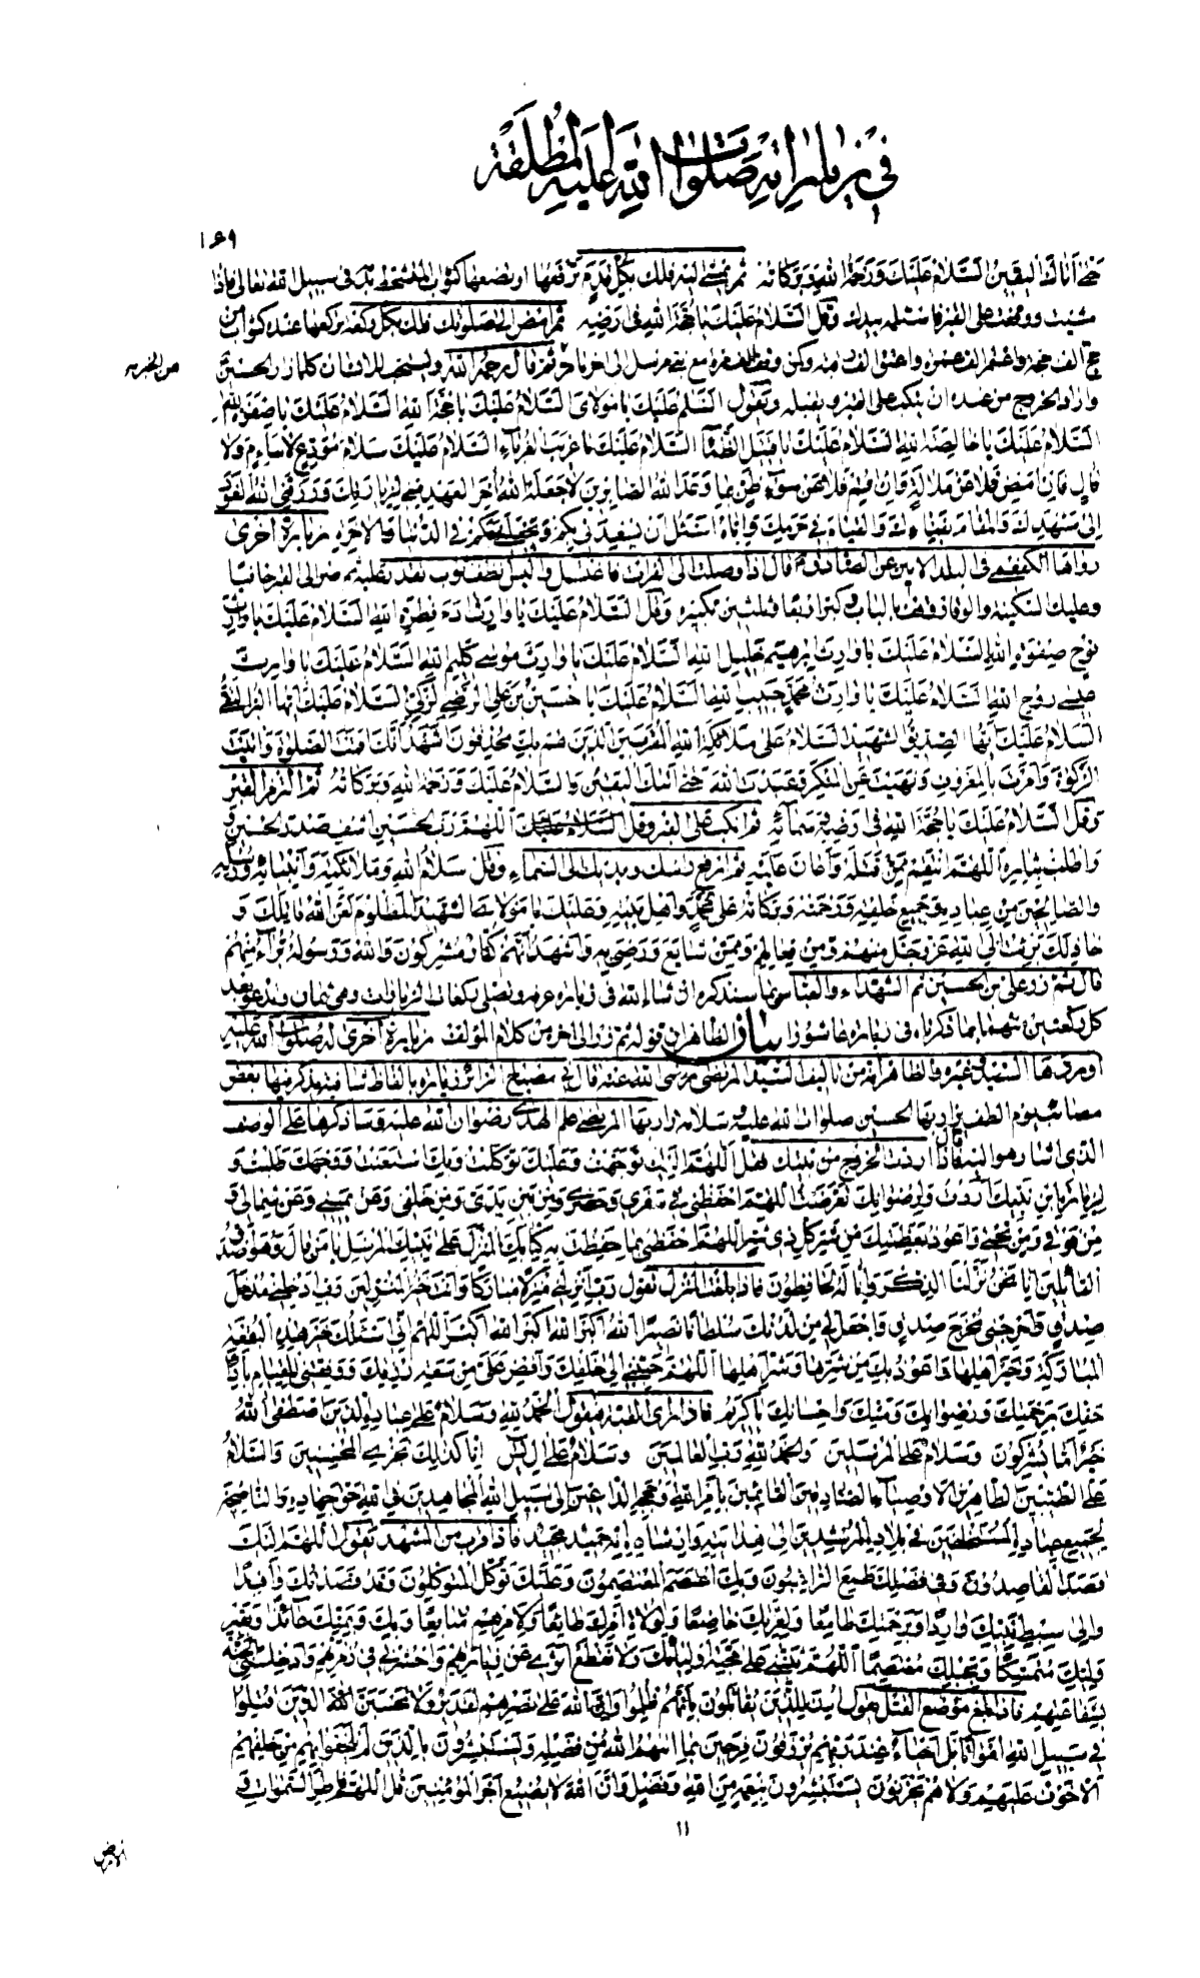 في زياراته صلوات الله عليه المطلقة
١٦٩
حتى أتاك اليقين السلام عليك ورحمة الله وبركاته ثم تمشي إليه فلك بكل قدم ترفعها أو تضعها كثواب المتشحط بدمه في سبيل الله تعالى فإذا
مشيت ووقفت على القبر فاستلمه بيدك وقل السلام عليك يا حجة الله في أرضه ثم امض إلى صلوتك فلك بكل ركعة تركعها عنده كثواب من
حج ألف حجة واعتمر ألف عمرة وأعتق ألف رقبة وكمن وقف ألف مرة مع نبي مرسل إلى آخر ما مر ثم قال رحمه الله ويستحب للإنسان كلما زار الحسين
وأراد الخروج من عنده أن ينكب على القبر ويقبله ويقول السلم عليك يا مولاي السلام عليك يا حجة الله السلام عليك يا صفوة الله
السلام عليك يا خالصة الله السلام عليك يا قتيل الظماء السلام عليك يا غريب الغرباء السلام عليك سلام مودع لا سئم ولا
قال فإن أمض فلا عن ملالة وإن أقم فلا عن سوء ظن بما وعد الله الصابرين لا جعله الله آخر العهد مني لزيارتك ورزقني الله العود
إلى مشهدك والمقام بفنائك والقيام في حرمك وإياه أسئل أن يسعدني بكم ويجعلني معكم في الدنيا والآخرة زيارة أخرى
رواها الكفعمي في البلد الأمين عن الصادق قال إذا وصلت إلى الفرات فاغتسل والبس أنظف ثوب تقدر عليه ثم صر إلى القبر حافيا
وعليك السكينة والوقار وقف بالباب وكبر أربعا وثلثين تكبيرة وقل السلام عليك يا وارث آدم فطرة الله السلام عليك يا وارث
نوح صفوة الله السلام عليك يا وارث إبرهيم خليل الله السلام عليك يا وارث موسى كليم الله السلام عليك يا وارث
عيسى روح الله السلام عليك يا وارث محمد حبيب الله السلام عليك يا حسين بن علي الزكي السلام عليك أيها
السلام عليك أيها الصديق الشهيد السلام على ملائكة الله المقربين الذين هم بك محدقون أشهد أنك أقمت الصلوة وآتيت
الزكوة وأمرت بالمعروف ونهيت عن المنكر وعبدت الله حتى أتاك اليقين والسلام عليك ورحمة الله وبركاته ثم التزم القبر
وقل السلام عليك يا حجة الله في أرضه وسمائه ثم انكب على القبر وقل اللهم رب الحسين اشف صدر الحسين
واطلب بثاره اللهم انتقم ممن قتله وأعان عليه ثم ارفع رأسك ويديك إلى السماء وقل سلام الله وملائكته وأنبيائه ورسله
والصالحين من عباده وجميع خلقه ورحمته وبركاته على محمد وأهل بيته وعليك يا مولاي الشهيد المظلوم لعن الله قاتلك و
خاذلك برئت إلى الله عز وجل منهم ومن فعالهم وممن شايع ورضي به وأشهد أنهم كفار مشركون والله ورسوله براء منهم
قال ثم زر علي بن الحسين ثم الشهداء والعباس بما سنذكره إن شاء الله في زيارة عرفة وتصلي ركعات الزيارات وهي ثمان وتدعو بعد
كل ركعتين منها بما ذكرناه في زيارة عاشورا بيان الظاهر أن قوله ثم زر إلى آخره من كلام المؤلف زيارة أخرى له صلوات الله عليه
أوردها السيد وغيره والظاهر أنه من تأليف السيد المرتضى رضي الله عنه قال في مصباح الزائر زيارة بألفاظ شافية يذكر فيها بعض
مصائب يوم الطف يزار بها الحسين صلوات الله عليه وسلامه زار بها المرتضى علم الهدى رضوان الله عليه وسأذكرها على الوصف
الذي أشار هو إليه قال فإذا أردت الخروج من بيتك فقل اللهم إليك توجهت وعليك توكلت وبك استعنت ووجهك طلبت و
لزيارة ابن نبيك أردت ولرضوانك تعرضت اللهم احفظني في سفري وحضري ومن بين يدي ومن خلفي وعن يميني وعن شمالي و
من فوقي ومن تحتي وأعوذ بعظمتك من شر كل ذي شر اللهم احفظني بما حفظت به كتابك المنزل على نبيك المرسل يا من قال وهو أصدق
القائلين إنا نحن نزلنا الذكر وإنا له لحافظون فإذا بلغت المنزل تقول رب أنزلني منزلا مباركا وأنت خير المنزلين رب أدخلني مدخل
صدق وأخرجني مخرج صدق واجعل لي من لدنك سلطانا نصيرا الله أكبر الله أكبر الله أكبر اللهم إني أسئلك خير هذه البقعة
المباركة وخير أهلها وأعوذ بك من شرها وشر أهلها اللهم حببني إلى خلقك وأفض علي من سعة رزقك ووفقني للقيام بأداء
حقك برحمتك ورضوانك ومنك وإحسانك يا كريم فإذا تراءى القبة فقل الحمد لله وسلام على عباده الذين اصطفى الله
خير أما يشركون وسلام على المرسلين والحمد لله رب العالمين وسلام على آل يس إنا كذلك نجزي المحسنين والسلام
على الطيبين الطاهرين الأوصياء الصادقين القائمين بأمر الله وحججه الداعين إلى سبيل الله المجاهدين في الله حق جهاده والناصحين
لجميع عباده المستخلفين في بلاده المرشدين إلى هدايته وإرشاده إنه حميد مجيد فإذا قرب من المشهد تقول اللهم إليك
قصد القاصدون وفي فضلك طمع الراغبون وبك اعتصم المعتصمون وعليك توكل المتوكلون وقد قصدتك وافدا
وإلى سبط نبيك واردا وبرحمتك طامعا ولعزتك خاضعا ولولاة أمرك طائعا ولأمرهم متابعا وبك وبمنك عائذا
وليك متمسكا وبحبلك معتصما اللهم ثبتني على محبة أوليائك ولا تقطع أثري عن زيارتهم واحشرني في زمرتهم وأدخلني الجنة
بشفاعتهم فإذا بلغ موضع القتل يقول أذن للذين يقاتلون بأنهم ظلموا وإن الله على نصرهم لقدير ولا تحسبن الله الذين قتلوا
في سبيل الله أمواتا بل أحياء عند ربهم يرزقون فرحين بما آتيهم الله من فضله ويستبشرون بالذين لم يلحقوا بهم من خلفهم
ألا خوف عليهم ولا هم يحزنون يستبشرون بنعمة من الله وفضل وأن الله لا يضيع أجر المؤمنين قل اللهم فاطر السموات و
١١
الأرض